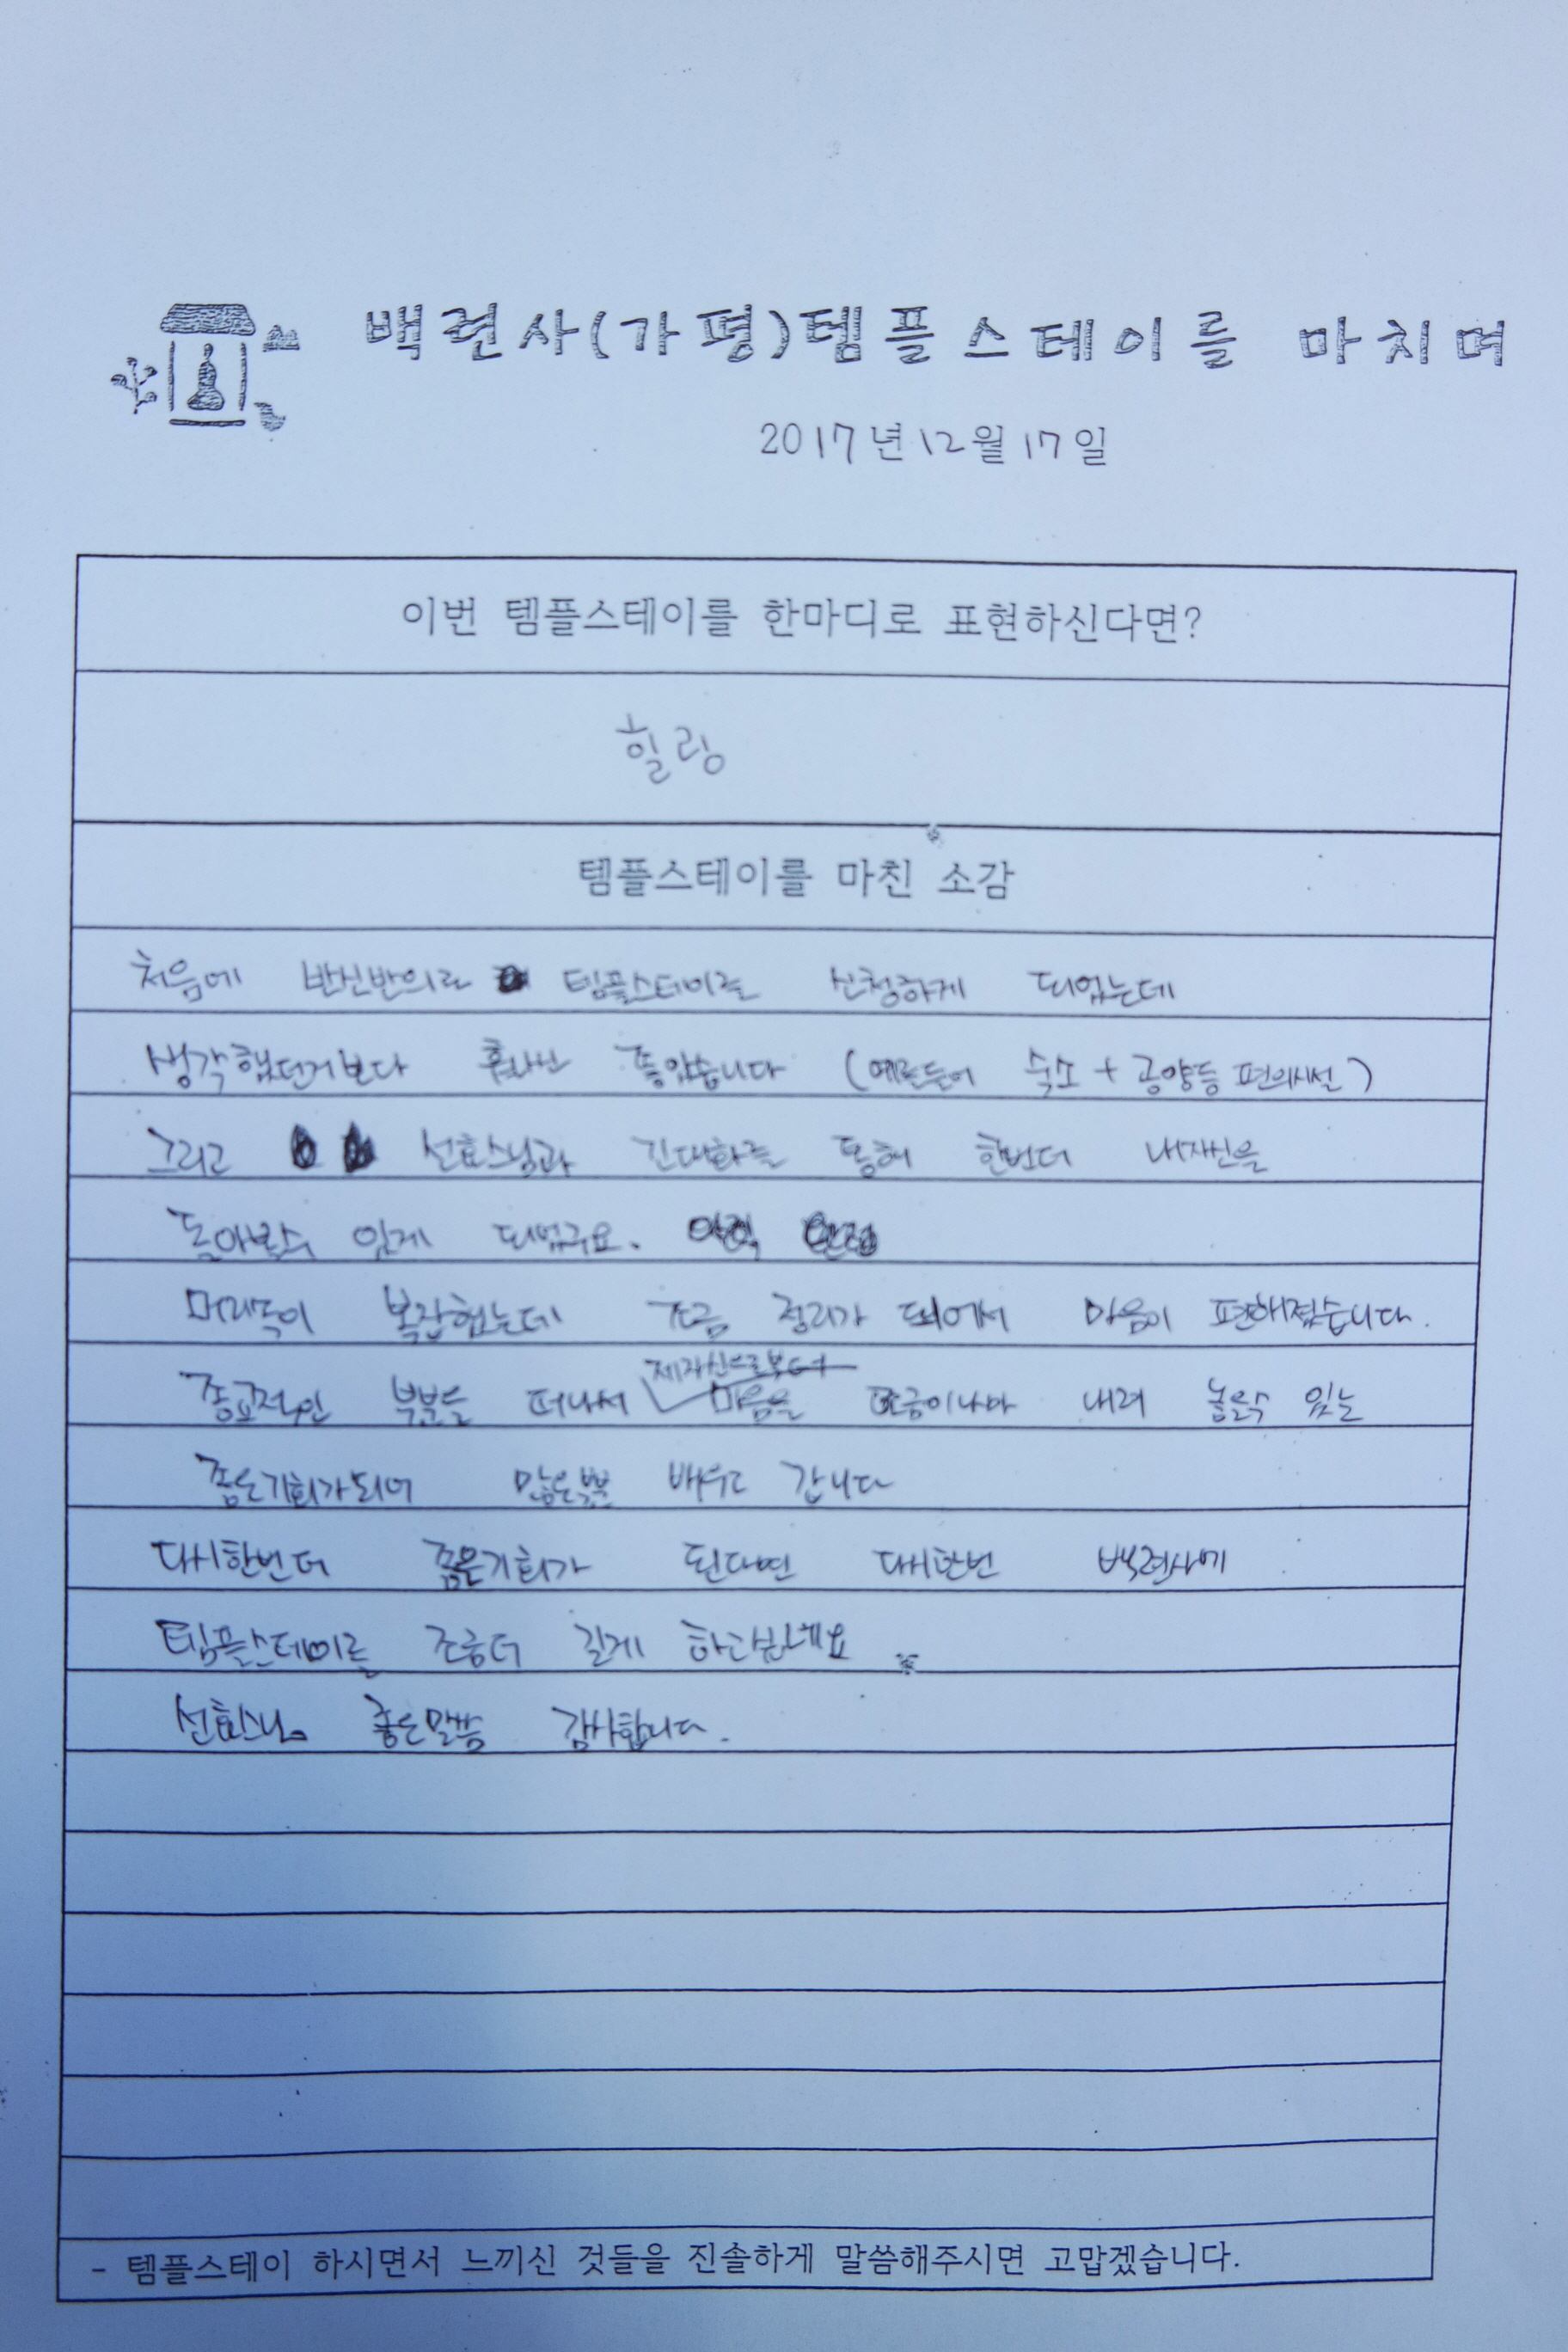 백련사(가평)템플스테이를 마치며
2017년 12월 17일
이번 템플스테이를 한마디로 표현하신다면?
힐링
템플스테이를 마친 소감
처음에 반신반의로 템플스테이를 신청하게 되었는데
생각했던거보다 훨씬 좋았습니다 (예를들어 숙소 + 공양등 편의시설)
그리고 선효스님과 긴대화를 통해 한번더 내자신을
돌아볼수 있게 되었구요.
머리속이 복잡했는데 조금 정리가 되어서 마음이 편해졌습니다.
제자신으로부터
종교적인 부분을 떠나서 마음을 조금이나마 내려 놓을수 있는
좋은기회가되어 많은부분 배우고 갑니다
다시한번더 좋은기회가 된다면 다시한번 백련사에
템플스테이를 조금더 길게 하고싶네요
선효스님 좋은말씀 감사합니다.
- 템플스테이 하시면서 느끼신 것들을 진솔하게 말씀해주시면 고맙겠습니다.